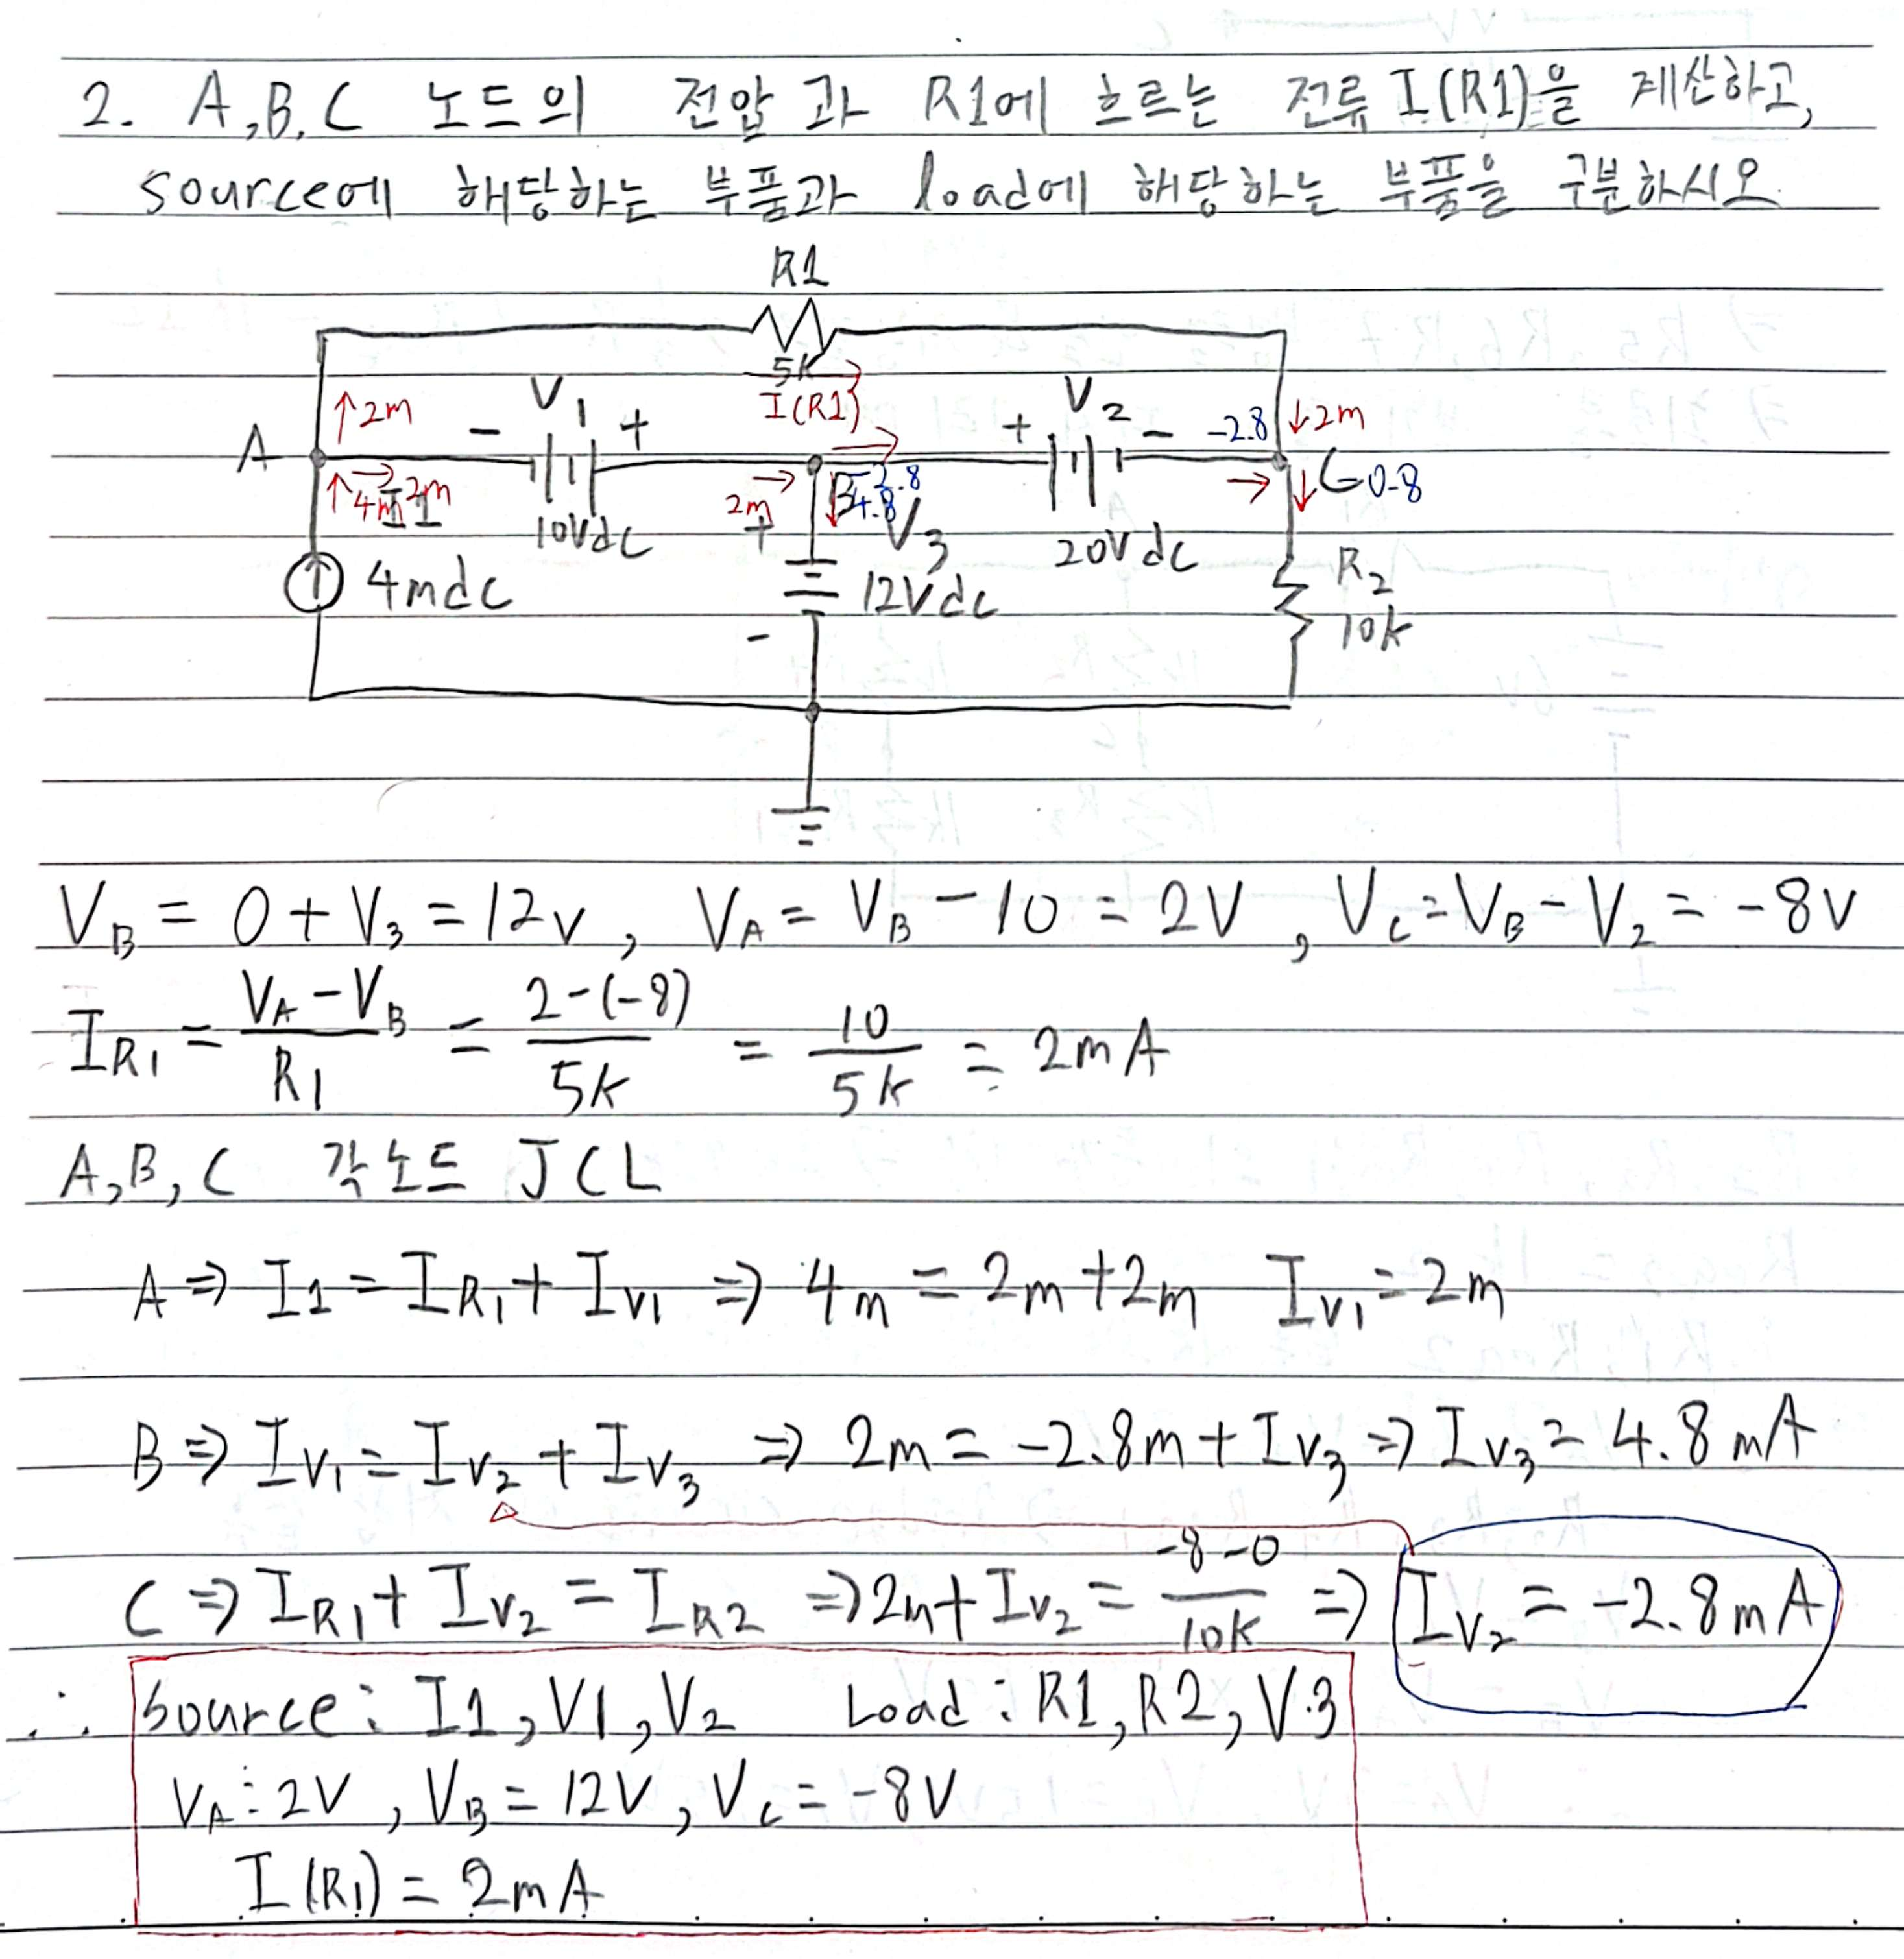 2. A,B,C 노드의 전압과 R1에 흐르는 전류 I(R1)을 계산하고,
source에 해당하는 부품과 load에 해당하는 부품을 구분하시오
R1
5K
I(R1)
↑2m
V1
V2
-2.8
↓2m
A
-
+
+
-
↑4m
2m
I1
2m
B
-2.8
4.8
C
-0.8
10Vdc
+
V3
20Vdc
4mdc
12Vdc
R2
10k
-
VB = 0 + V3 = 12V, VA = VB - 10 = 2V, VC = VB - V2 = -8V
IR1 = (VA - VB)/R1 = (2-(-8))/5K = 10/5K = 2mA
A,B,C 각노드 JCL
A ⇒ I1 = IR1 + IV1 ⇒ 4m = 2m + 2m IV1 = 2m
B ⇒ IV1 = IV2 + IV3 ⇒ 2m = -2.8m + IV3 ⇒ IV3 = 4.8mA
C ⇒ IR1 + IV2 = IR2 ⇒ 2m + IV2 = (-8-0)/10K ⇒ IV2 = -2.8mA
∴ Source: I1, V1, V2 Load: R1, R2, V3
VA = 2V, VB = 12V, VC = -8V
I(R1) = 2mA